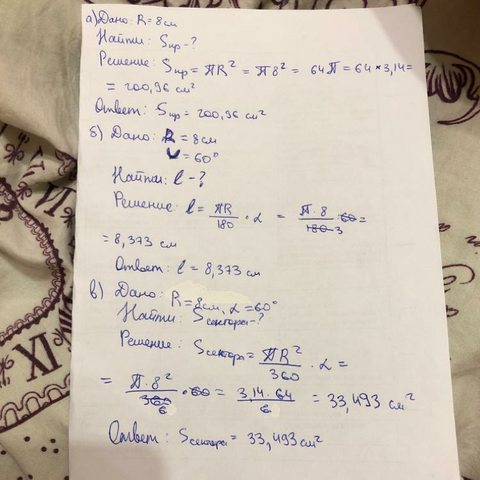 а) Дано: R = 8 см
Найти: Sкр - ?
Решение: Sкр = πR² = π8² = 64π = 64 * 3,14 =
= 200,96 см²
Ответ: Sкр = 200,96 см²
б) Дано: R = 8 см
= 60°
Найти: l - ?
Решение: l = πR/180 · α = π·8/180 3 · 60 =
= 8,373 см
Ответ: l = 8,373 см
в) Дано: R = 8 см, α = 60°
Найти: Sсектора - ?
Решение: Sсектора = πR²/360 · α =
= π·8²/360 6 · 60 = 3,14·64/6 = 33,493 см²
Ответ: Sсектора = 33,493 см²
IX